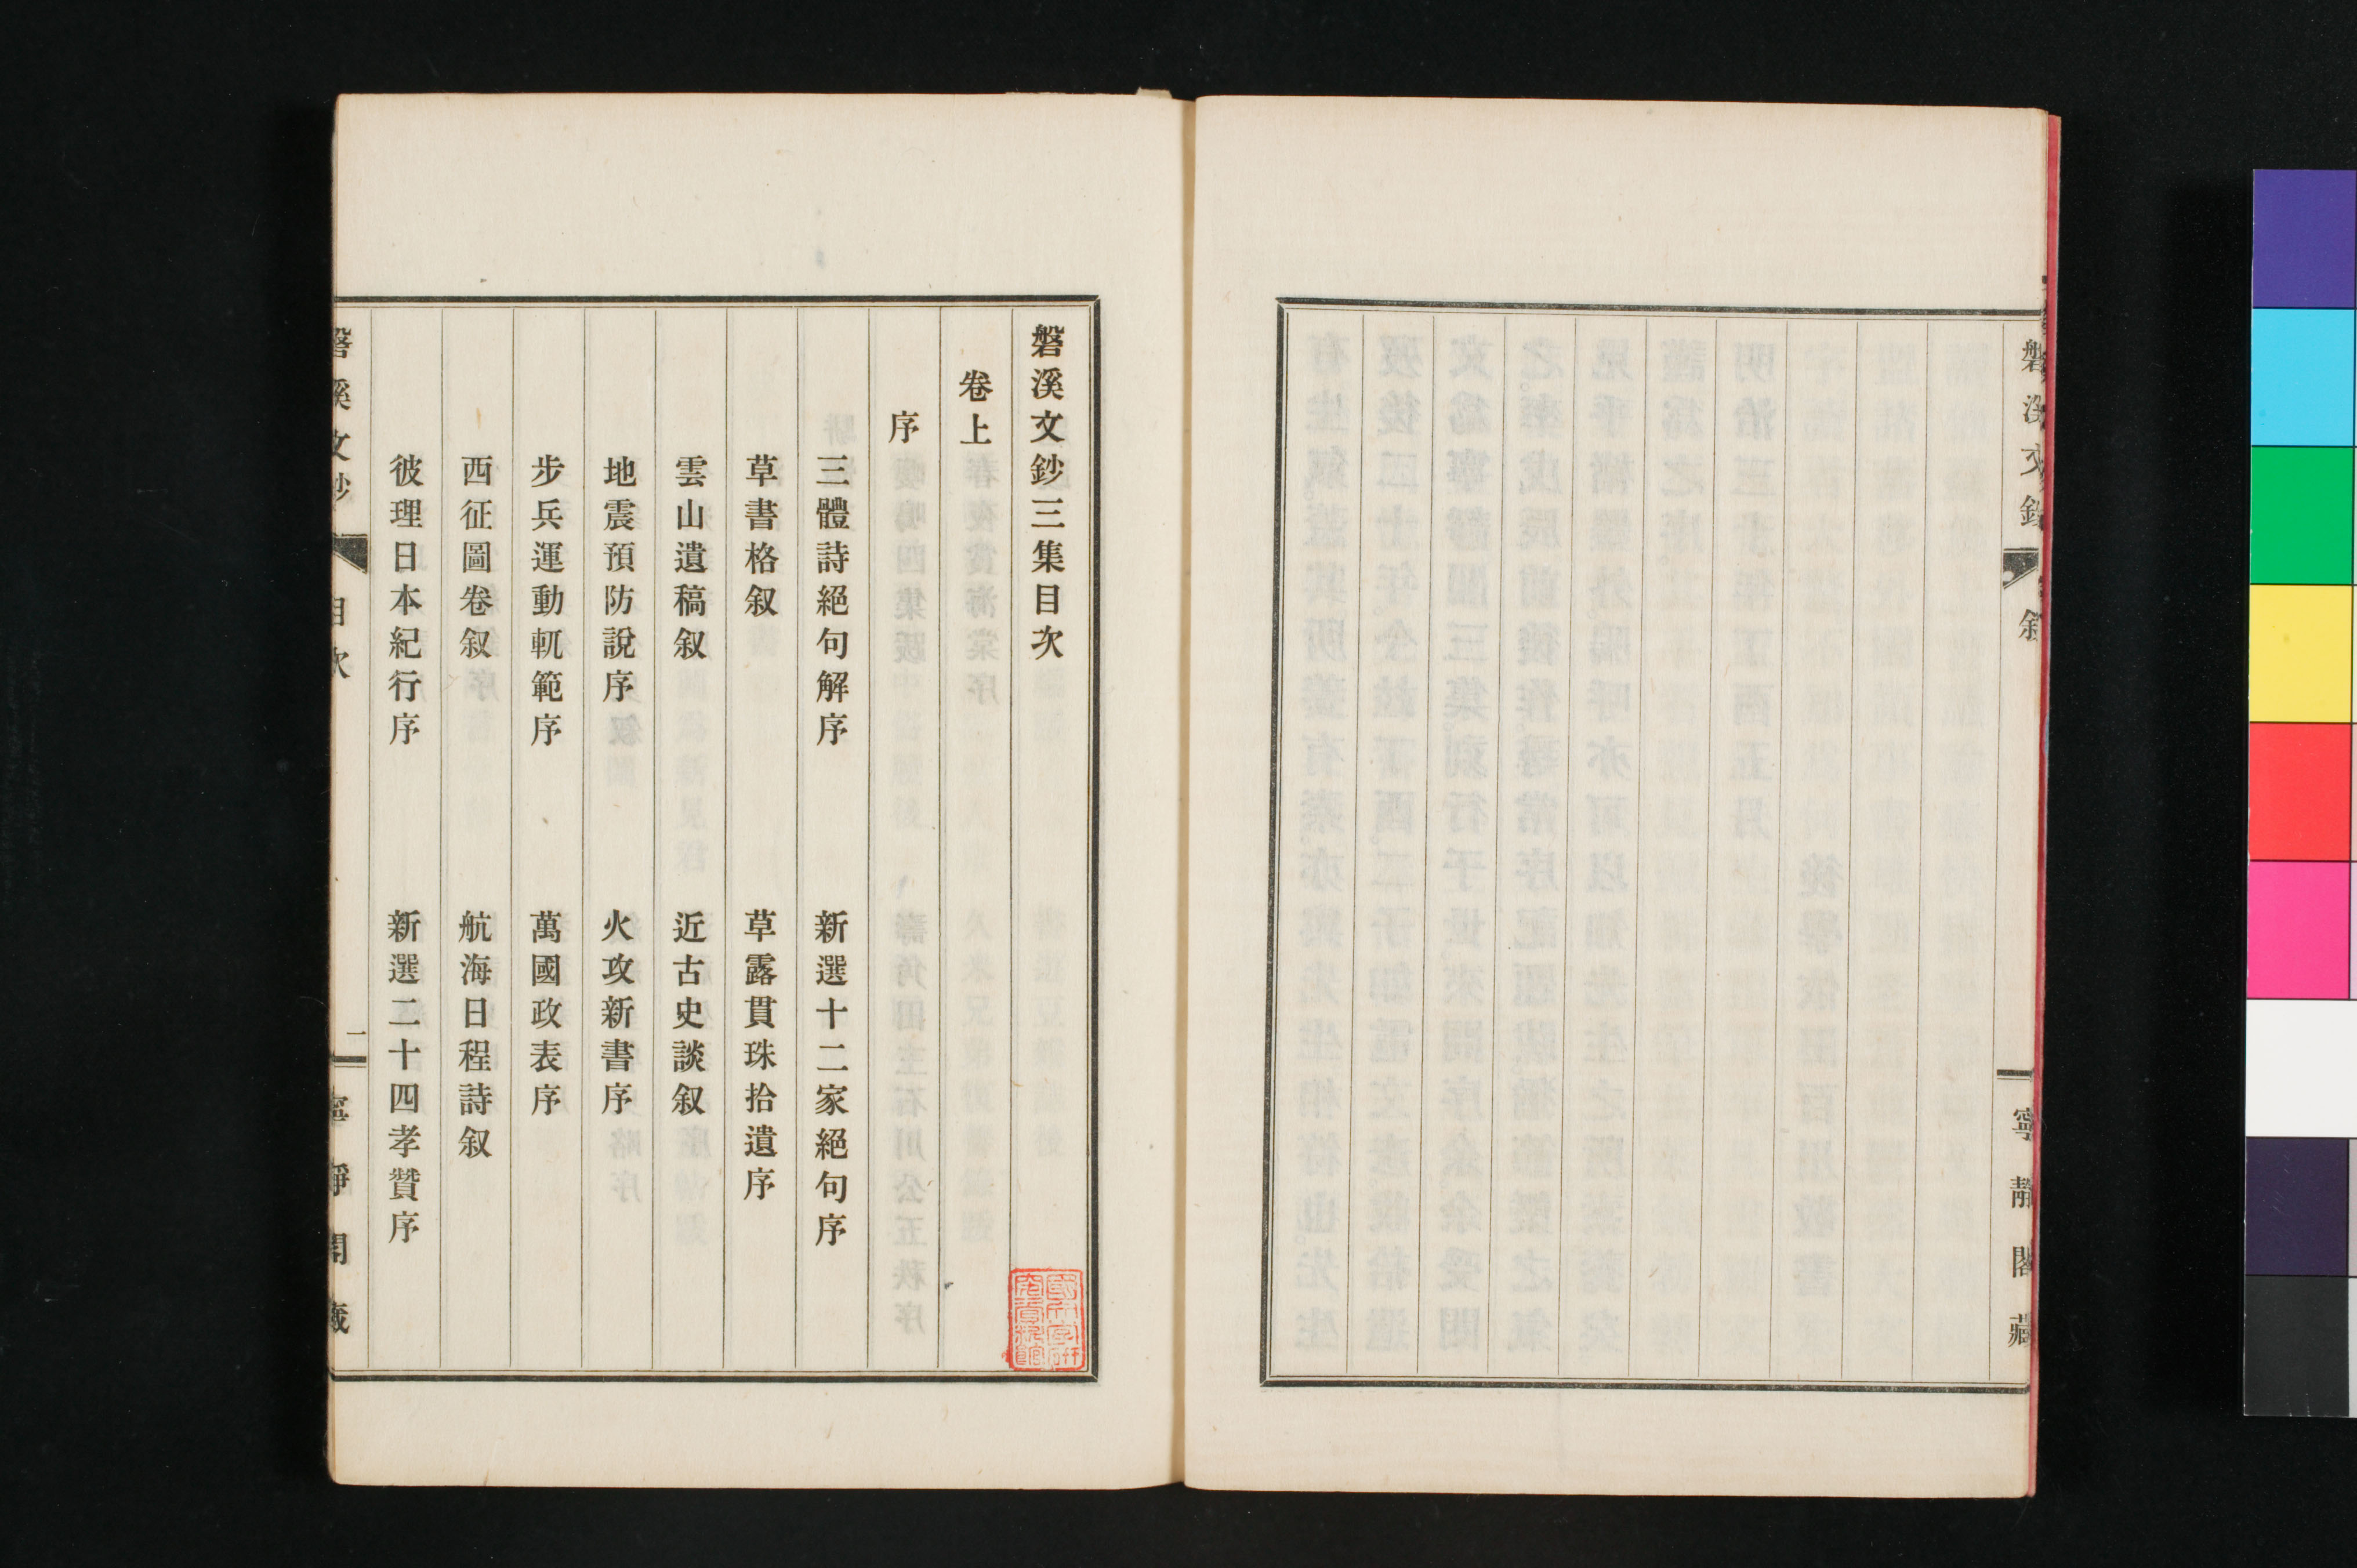 磐溪文鈔
叙
寧靜閣藏
磐溪文鈔三集目次
卷上
序
三體詩絕句解序
新選十二家絕句序
草書格叙
草露貫珠拾遺序
雲山遺稿叙
近古史談叙
地震預防說序
火攻新書序
步兵運動軌範序
萬國政表序
西征圖卷叙
航海日程詩叙
彼理日本紀行序
新選二十四孝贊序
磐溪文鈔
目次
一
寧靜閣藏